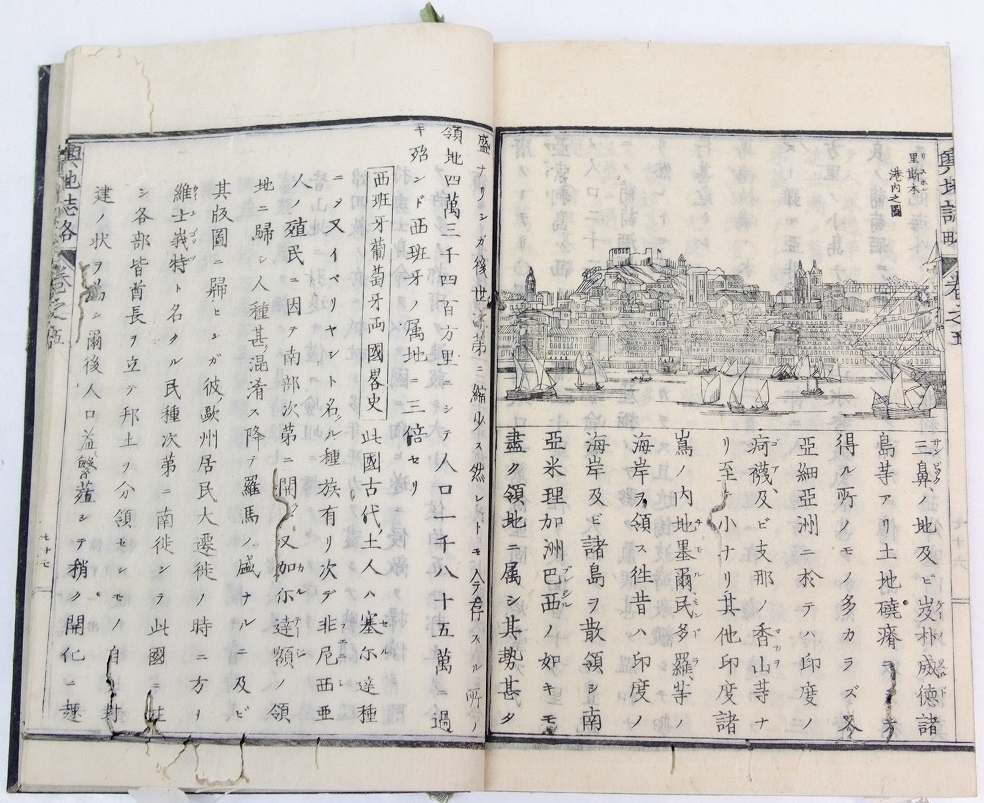 輿地誌略 卷之五
里斯本
港内之圖
三鼻ノ地及ビ岌朴威德諸
島等アリ土地磽瘠ニ
得ル所ノモノ多カラズ
亞細亞洲ニ於テハ印度ノ
疴襪及ビ支那ノ香山等ナ
リ至テ小ナリ其他印度諸
島ノ内地墨爾民多羅等ノ
海岸ヲ領ス徃昔ハ印度ノ
海岸及ビ諸島ヲ散領シ南
亞米理加洲巴西ノ如キモ
盡ク領地ニ属シ其勢甚タ
盛ナリシガ後世次第ニ縮少ス然レトモ今存スル所ノ
領地四萬三千四百方里ニシテ人口二千八十五萬ニ過
キ殆ンド西班牙ノ属地ニ三倍セリ
西班牙葡萄牙両國畧史 此國古代土人ハ塞尔達種
ニタ又イベリヤント名ル種族有リ次デ非尼西亜
人ノ殖民ニ因テ南部次第ニ開ク又加尓達額ノ領
地ニ歸シ人種甚混淆ス降テ羅馬ノ盛ナルニ及ビ
其版圖ニ歸セシガ彼歐州居民大遷徙ノ時ニ方リ
維士峩特ト名クル民種次第ニ南徙シテ此國ニ住
シ各部皆酋長ヲ立テ邦土ヲ分領セシモノ自ラ封
建ノ状ヲ為シ爾後人口益繁殖シテ稍々開化ニ趣
輿地志略 卷之五
七十七